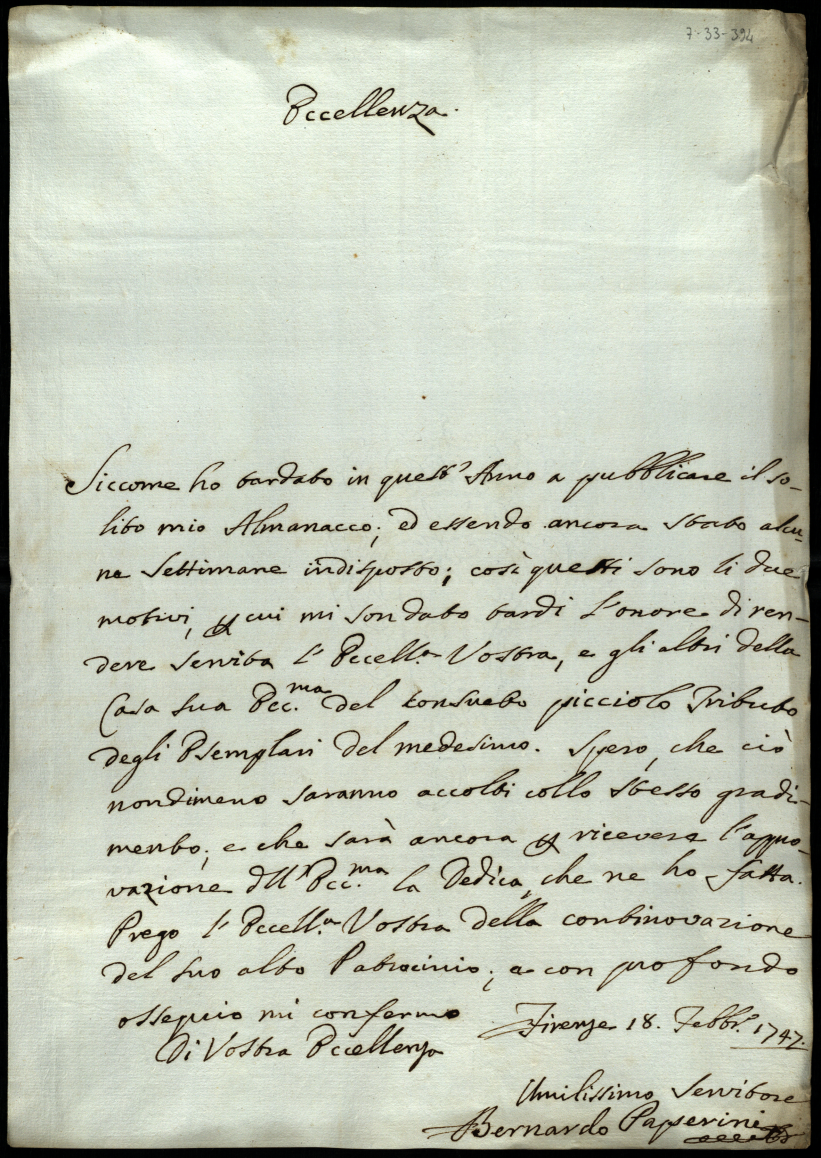 7-33-394
Eccellenza.
Siccome ho tardato in quest' Anno a pubblicare il so-
lito mio Almanacco; ed essendo ancora stato alcu-
ne Settimane indisposto; così questi sono li due
motivi, p cui mi son dato tardi l'onore di ren-
dere servita l'Eccell.a Vostra, e gli altri della
Casa sua Ecc.ma del consueto picciolo Tributo
degli Esemplari del medesimo. Spero, che ciò
nondimeno saranno accolti collo stesso gradi-
mento; e che sarà ancora p ricevere l'appro-
vazione dll' Ecc.ma la Dedica, che ne ho fatta.
Prego l'Eccell.a Vostra della continovazione
del suo alto Patrocinio; e con profondo
ossequio mi confermo
Di Vostra Eccellenza
Firenze 18. Febbr. 1747.
Umilissimo Servitore
Bernardo Paperini